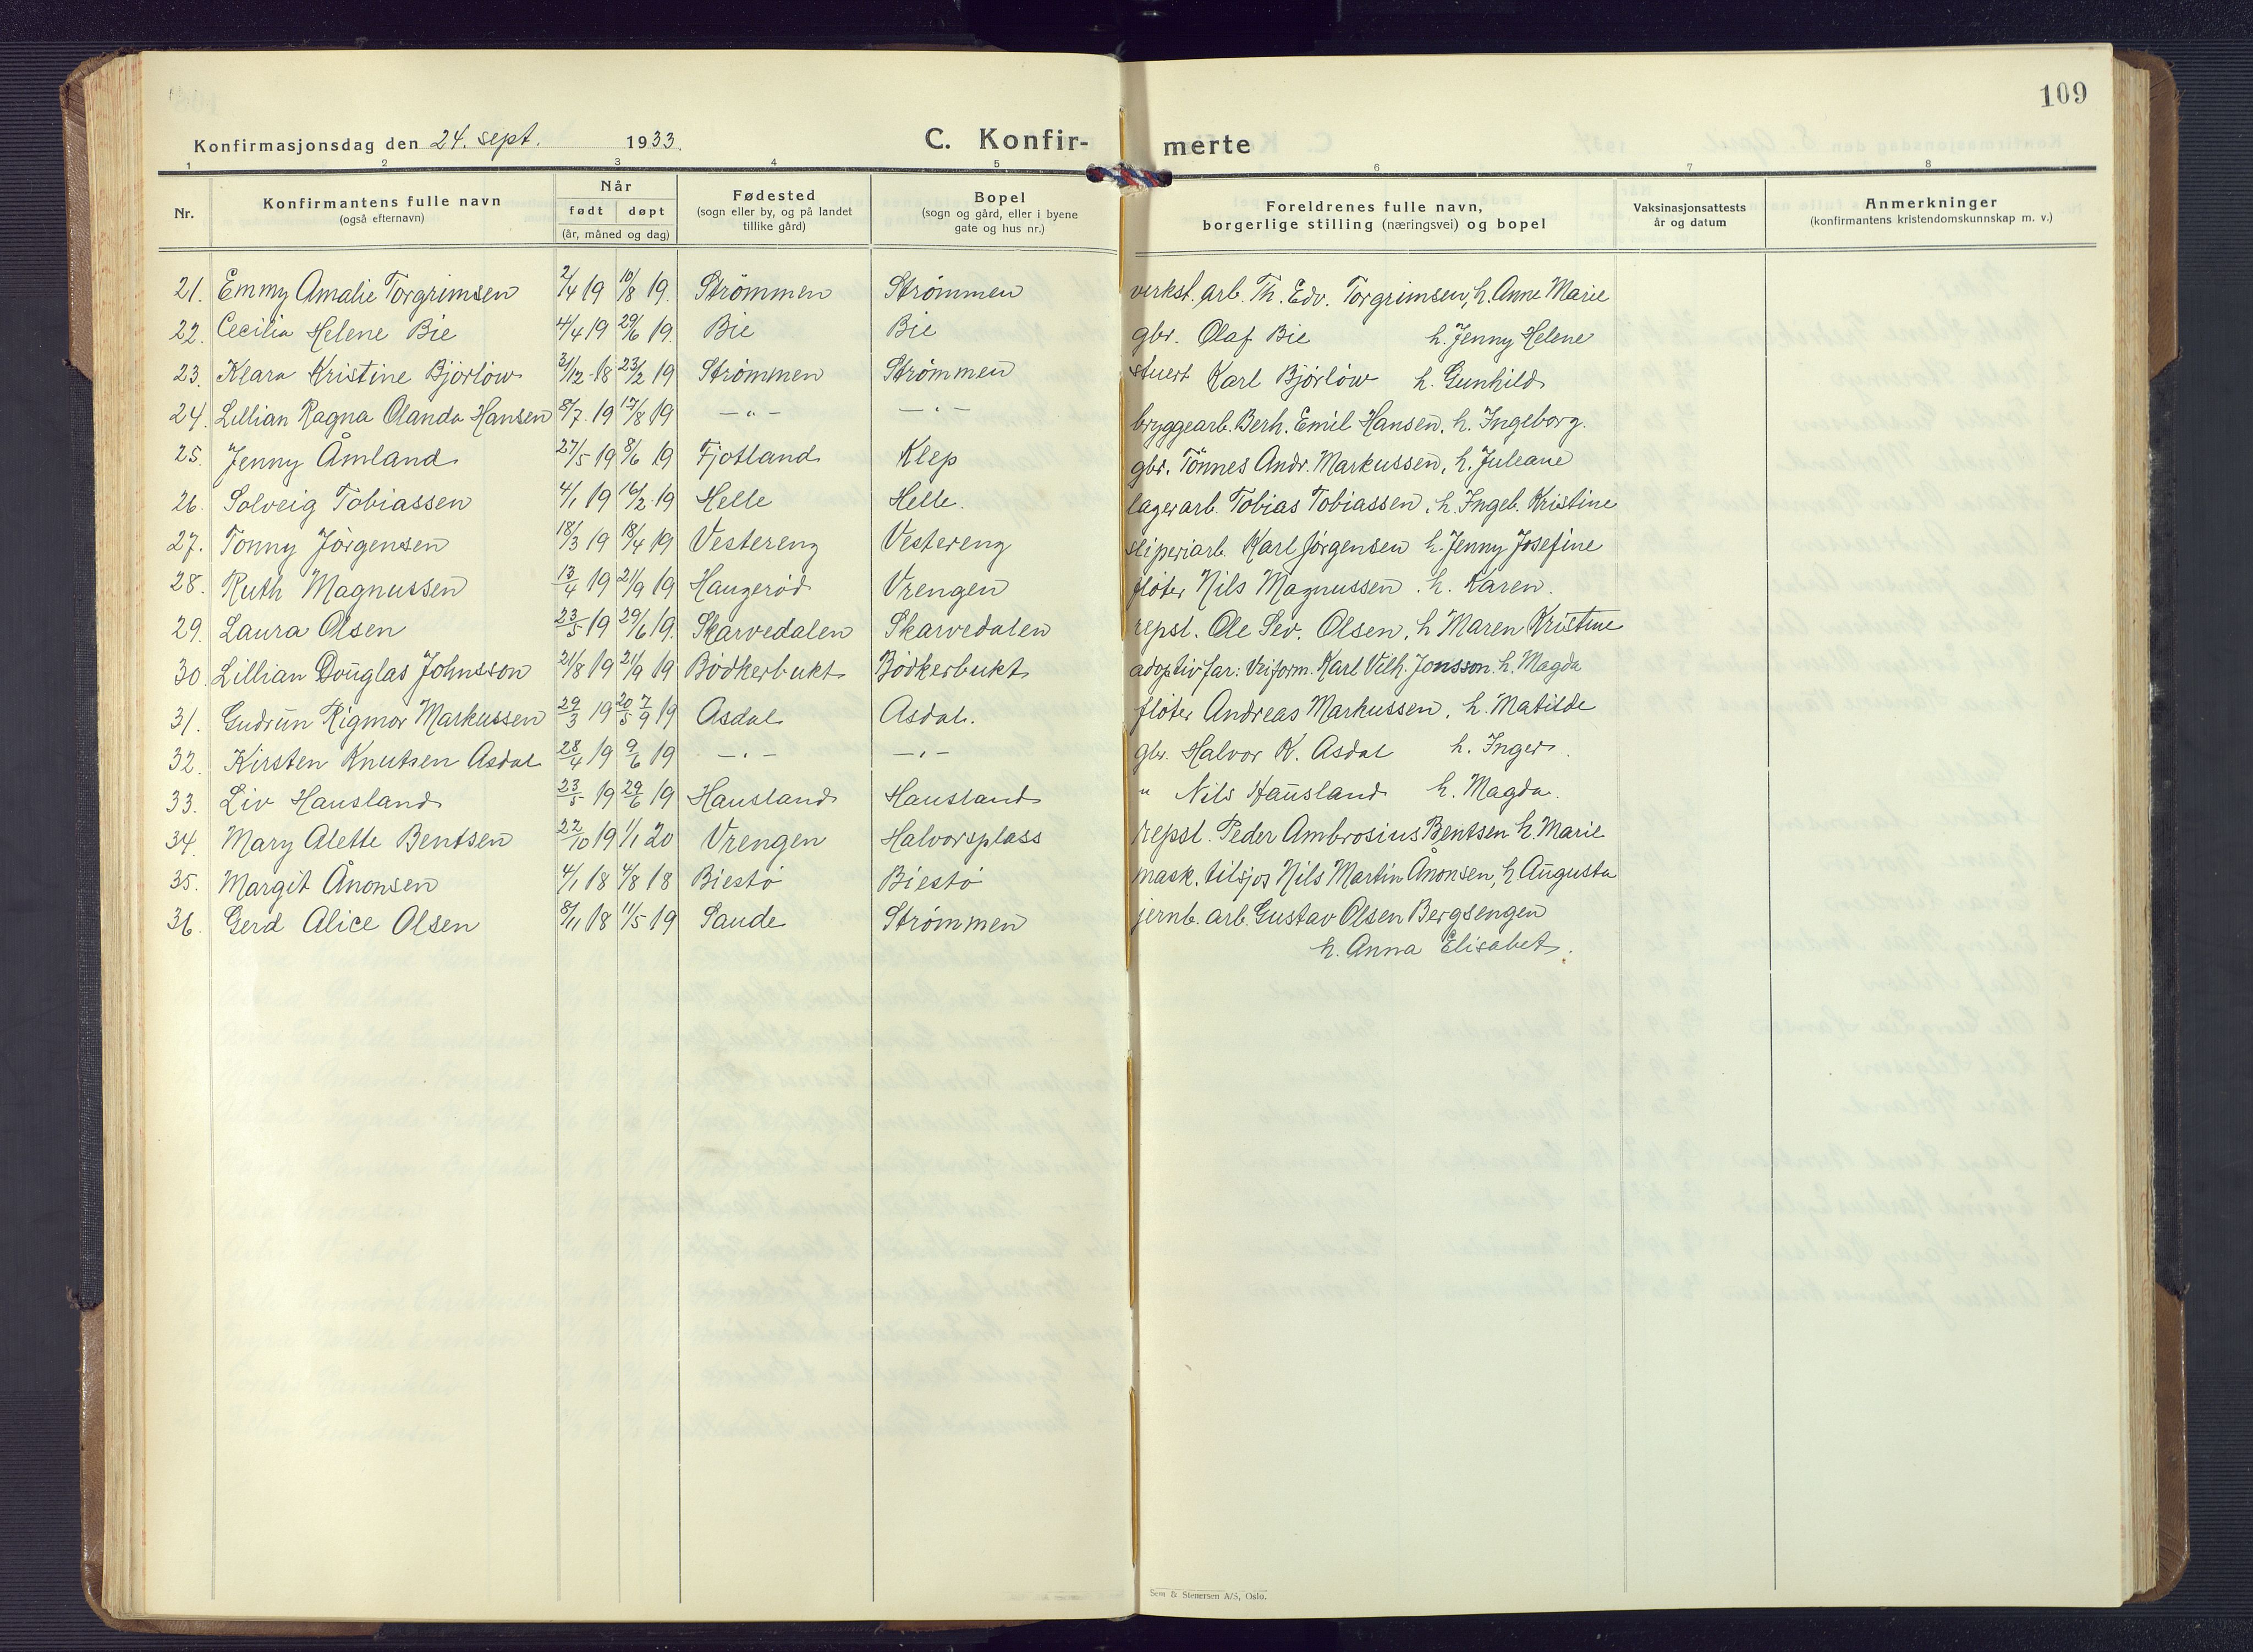 109
Konfirmasjonsdag den 24. sept. 1933. C. Konfir- merte
1 2 3 4 5 6 7 8
Nr. Konfirmantens fulle navn (også efternavn) Når født døpt (år, måned og dag) Fødested (sogn eller by, og på landet tillike gård) Bopel (sogn og gård, eller i byene gate og hus nr.) Foreldrenes fulle navn, borgerlige stilling (næringsvei) og bopel Vaksinasjonsattests år og datum Anmerkninger (konfirmantens kristendomskunnskap m. v.)
21. Emmy Amalie Torgrimsen 2/4 19 10/8 19. Strömmen Strömmen verkst. arb. Th. Edv. Torgrimsen, h. Anne Marie
22. Cecilia Helene Bie 4/4 19 29/6 19. Bie Bie gbr. Olaf Bie h. Jenny Helene
23. Klara Kristine Björlöw 31/12 18 23/2 19 Strömmen Strömmen stuert Karl Björlöw h. Gunhild
24. Lillian Ragna Olanda Hansen 8/7 19 17/8 19 — " — — " — bryggearb. Berh. Emil Hansen, h. Ingeborg.
25. Jenny Åmland 27/5 19 8/6 19 Fjotland Klep gbr. Tönnes Andr. Markussen, h. Juleane
26. Solveig Tobiassen 4/1 19 16/2 19 Helle Helle. lagerarb. Tobias Tobiassen, h. Ingeb. Kristine
27. Tonny Jörgensen 18/3 19 18/4 19 Vestereng Vestereng sliperiarb. Karl Jörgensen h. Jenny Josefine
28. Ruth Magnussen 13/4 19 21/9 19 Haugeröd Vrengen flöter Nils Magnussen . h. Karen.
29. Laura Olsen 23/5 19 29/6 19. Skarvedalen Skarvedalen repsl. Ole Sev. Olsen, h Maren Kristine
30. Lillian Douglas Johnsson 21/8 19 21/9 19 Bödkerbukt Bödkerbukt adoptivfar: Veiform. Karl Vilh. Jonsson h. Magda
31. Gudrun Rigmor Markussen 29/3 19 20/5 7/9 19 Asdal Asdal. flöter Andreas Markussen, h. Matilde
32. Kirsten Knutsen Asdal 28/4 19 9/6 19 — " — — " — gbr. Halvor K. Asdal h. Inger.
33. Liv Hausland 23/5 19 29/6 19 Hausland Hausland " Nils Hausland h. Magda.
34. Mary Alette Bentsen 22/10 19 1/1 20 Vrengen Halvorsplass repsl. Peder Ambrosius Bentsen h. Marie
35. Margit Ånonsen 4/1 18 4/8 18 Biestö Biestö mask. tilsjos Nils Martin Ånonsen, h Augusta
36. Gerd Alice Olsen 8/11 18 11/5 19 Saude Strömmen jernb. arb. Gustav Olsen Bergsengen
h. Anna Elisabet.
Sem & Stenersen A/S, Oslo.